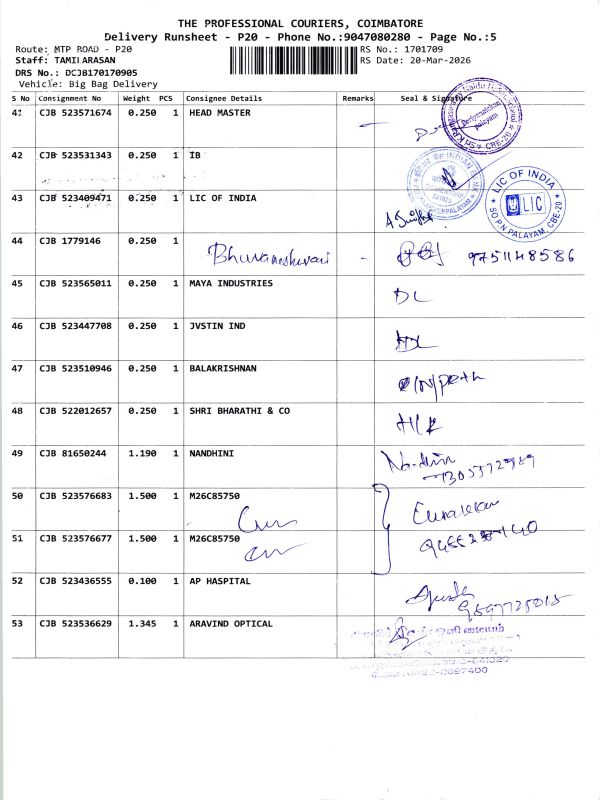 THE PROFESSIONAL COURIERS, COIMBATORE
Delivery Runsheet - P20 - Phone No.:9047080280 - Page No.:5
Route: MTP ROAD - P20
Staff: TAMILARASAN
DRS No.: DCJB170170905
Vehicle: Big Bag Delivery
RS No.: 1701709
RS Date: 20-Mar-2026
S No Consignment No Weight PCS Consignee Details Remarks Seal & Signature
41 CJB 523571674 0.250 1 HEAD MASTER
42 CJB 523531343 0.250 1 IB
43 CJB 523409471 0.250 1 LIC OF INDIA
LIC OF INDIA
LIC
SO P.N PALAYAM, CBE-20
44 CJB 1779146 0.250 1 Bhuvaneshwari - 9751148586
45 CJB 523565011 0.250 1 MAYA INDUSTRIES DL
46 CJB 523447708 0.250 1 JVSTIN IND
47 CJB 523510946 0.250 1 BALAKRISHNAN
48 CJB 522012657 0.250 1 SHRI BHARATHI & CO
49 CJB 81650244 1.190 1 NANDHINI
50 CJB 523576683 1.500 1 M26C85750
51 CJB 523576677 1.500 1 M26C85750
52 CJB 523436555 0.100 1 AP HASPITAL
53 CJB 523536629 1.345 1 ARAVIND OPTICAL